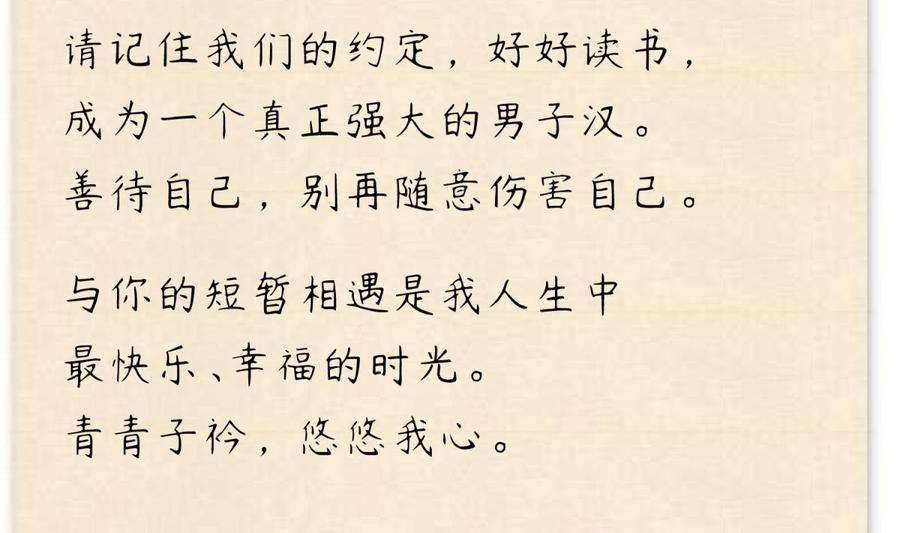 请记住我们的约定，好好读书，
成为一个真正强大的男子汉。
善待自己，别再随意伤害自己。
与你的短暂相遇是我人生中
最快乐、幸福的时光。
青青子衿，悠悠我心。